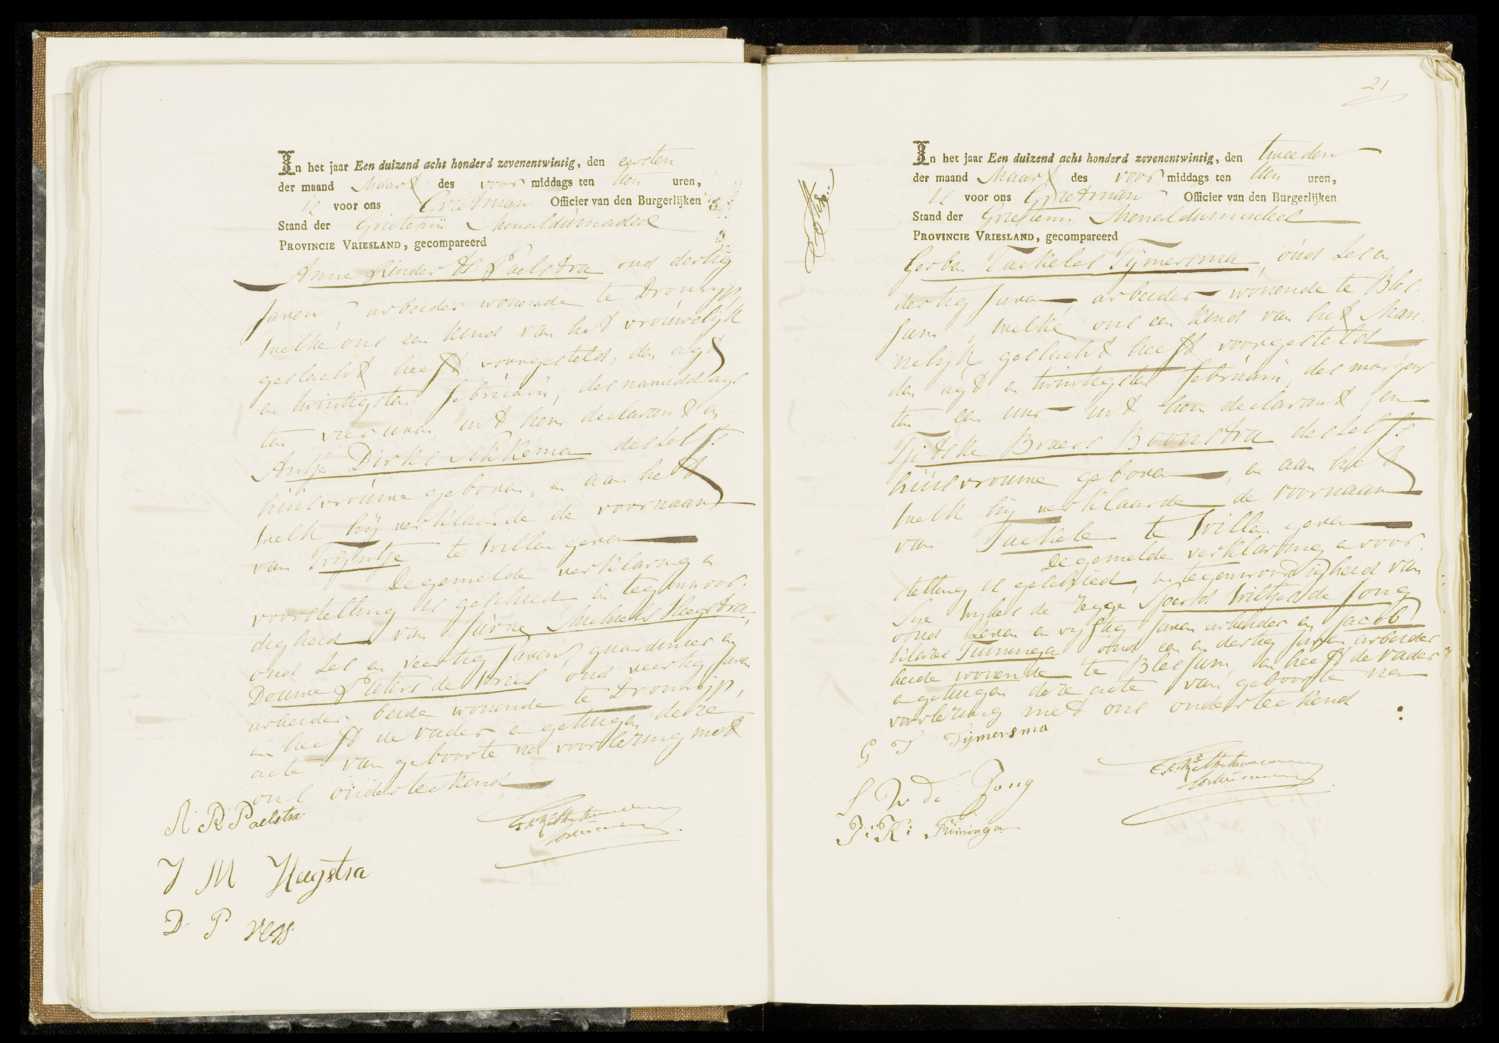 In het jaar Een duizend acht honderd zevenentwintig, den eersten
der maand Maart des voor middags ten tien uren,
is voor ons Grietman Officier van den Burgerlijken
Stand der Grietenij Menaldumadeel
PROVINCIE VRIESLAND, gecompareerd
Anne Rinderts Paelstra oud dertig
Jaren, arbeider wonende te Dronrijp,
welke ons een kind van het vrouwelijk
geslacht heeft voorgesteld, den agt
en twintigsten februarij, des namiddags
ten vier uren uit hem declarant en
Antje Dirks Sikkema deszelfs
huisvrouwe geboren, en aan het
welk hij verklaarde de voornaam
van Trijntje te willen geven
De gemelde verklaring en
voorstelling is geschied in tegenwoor-
digheid van Michiels Hegstra,
oud zes en veertig Jaren, en
Douwe Pieters de Vries oud veertig Jaren
arbeider beide wonende te Dronrijp,
en heeft de vader en getuigen deze
acte van geboorte na voorlezing met
ons onderteekend
A R Paelstra
J M Hegstra
D P vries
21
In het jaar Een duizend acht honderd zevenentwintig, den tweeden
der maand Maart des voor middags ten tien uren,
is voor ons Grietman Officier van den Burgerlijken
Stand der Grietenij Menaldumadeel
PROVINCIE VRIESLAND, gecompareerd
Gerben Taekeles Tijmersma, oud zes en
dertig Jaren arbeider wonende te Bles-
sum, welke ons een kind van het Man-
nelijk geslacht heeft voorgesteld
den agt en twintigsten februarij, des morgens
ten een uur uit hem declarant en
Tjitske Boonstra deszelfs
huisvrouwe geboren, en aan het
welk hij verklaarde de voornaam
van Taekele te willen geven
De gemelde verklaring en voor-
stelling is geschied, in tegenwoordigheid van
Sjoerd Wilkes de Jong
oud zeven en vijftig Jaren arbeider en Jacob
Tuininga oud een en dertig Jaren arbeider
beide wonende te Blessum, en heeft de vader
en getuigen deze acte van geboorte na
voorlezing met ons onderteekend
G T Tijmersma
S W de Jong
J: K: Tuininga